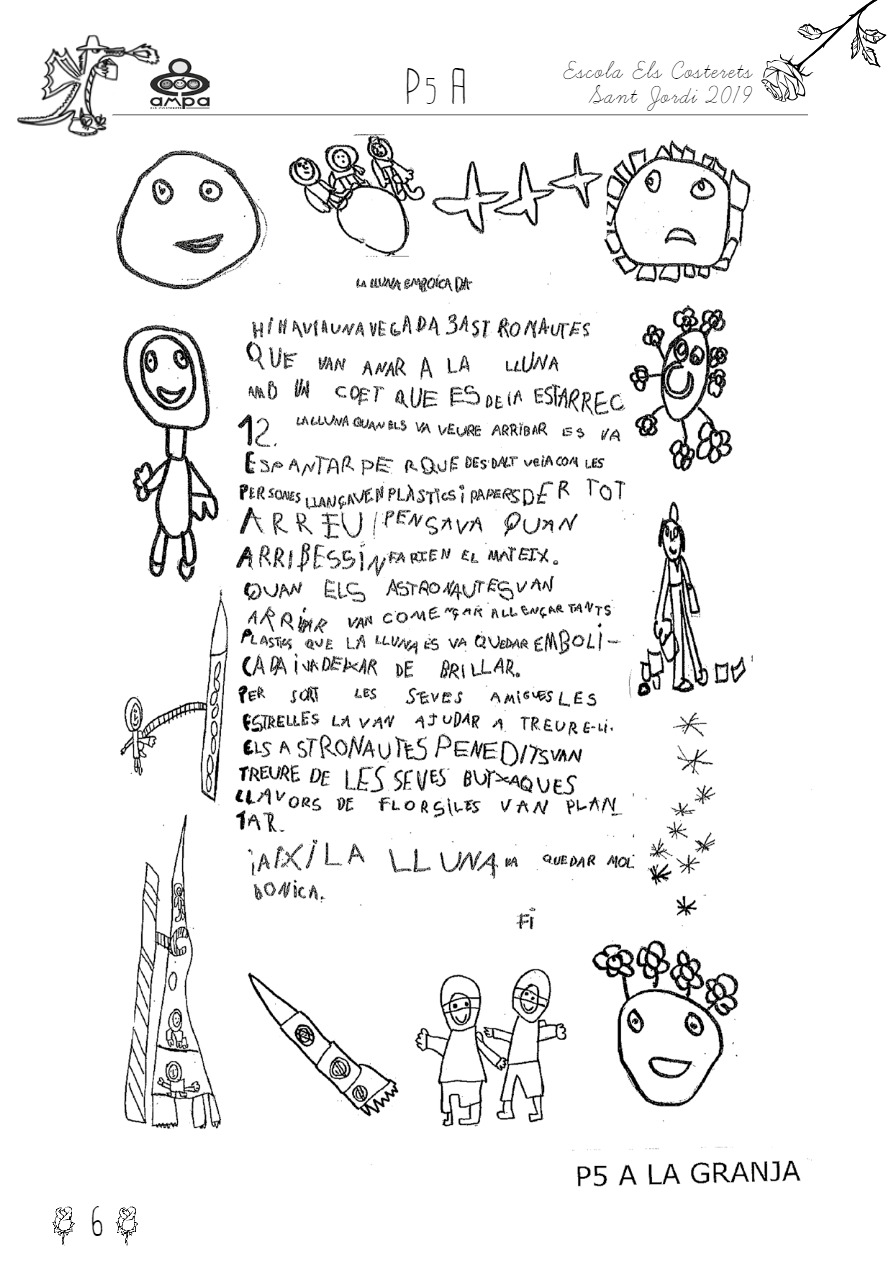 ampa
P5 A
Escola Els Costerets
Sant Jordi 2019
LA LLUNA EMBOICADA
HI HAVIA UNA VEGADA 3 ASTRONAUTES
QUE VAN ANAR A LA LLUNA
AMB UN COET QUE ES DEIA ESTARREC
12. LA LLUNA QUAN ELS VA VEURE ARRIBAR ES VA
ESPANTAR PERQUE DES DALT VEIA COM LES
PERSONES LLANÇAVEN PLÀSTICS I PAPERS PER TOT
ARREU I PENSAVA QUAN
ARRIBESSIN FARIEN EL MATEIX.
QUAN ELS ASTRONAUTES VAN
ARRIBAR VAN COMENÇAR A LLENÇAR TANTS
PLASTICS QUE LA LLUNA ES VA QUEDAR EMBOLI-
CADA I VA DEIXAR DE BRILLAR.
PER SORT LES SEVES AMIGUES LES
ESTRELLES LA VAN AJUDAR A TREURE-LI.
ELS ASTRONAUTES PENEDITS VAN
TREURE DE LES SEVES BUTXAQUES
LLAVORS DE FLORS I LES VAN PLAN_
TAR.
I AIXI LA LLUNA VA QUEDAR MOL
BONICA.
FI
P5 A LA GRANJA
6